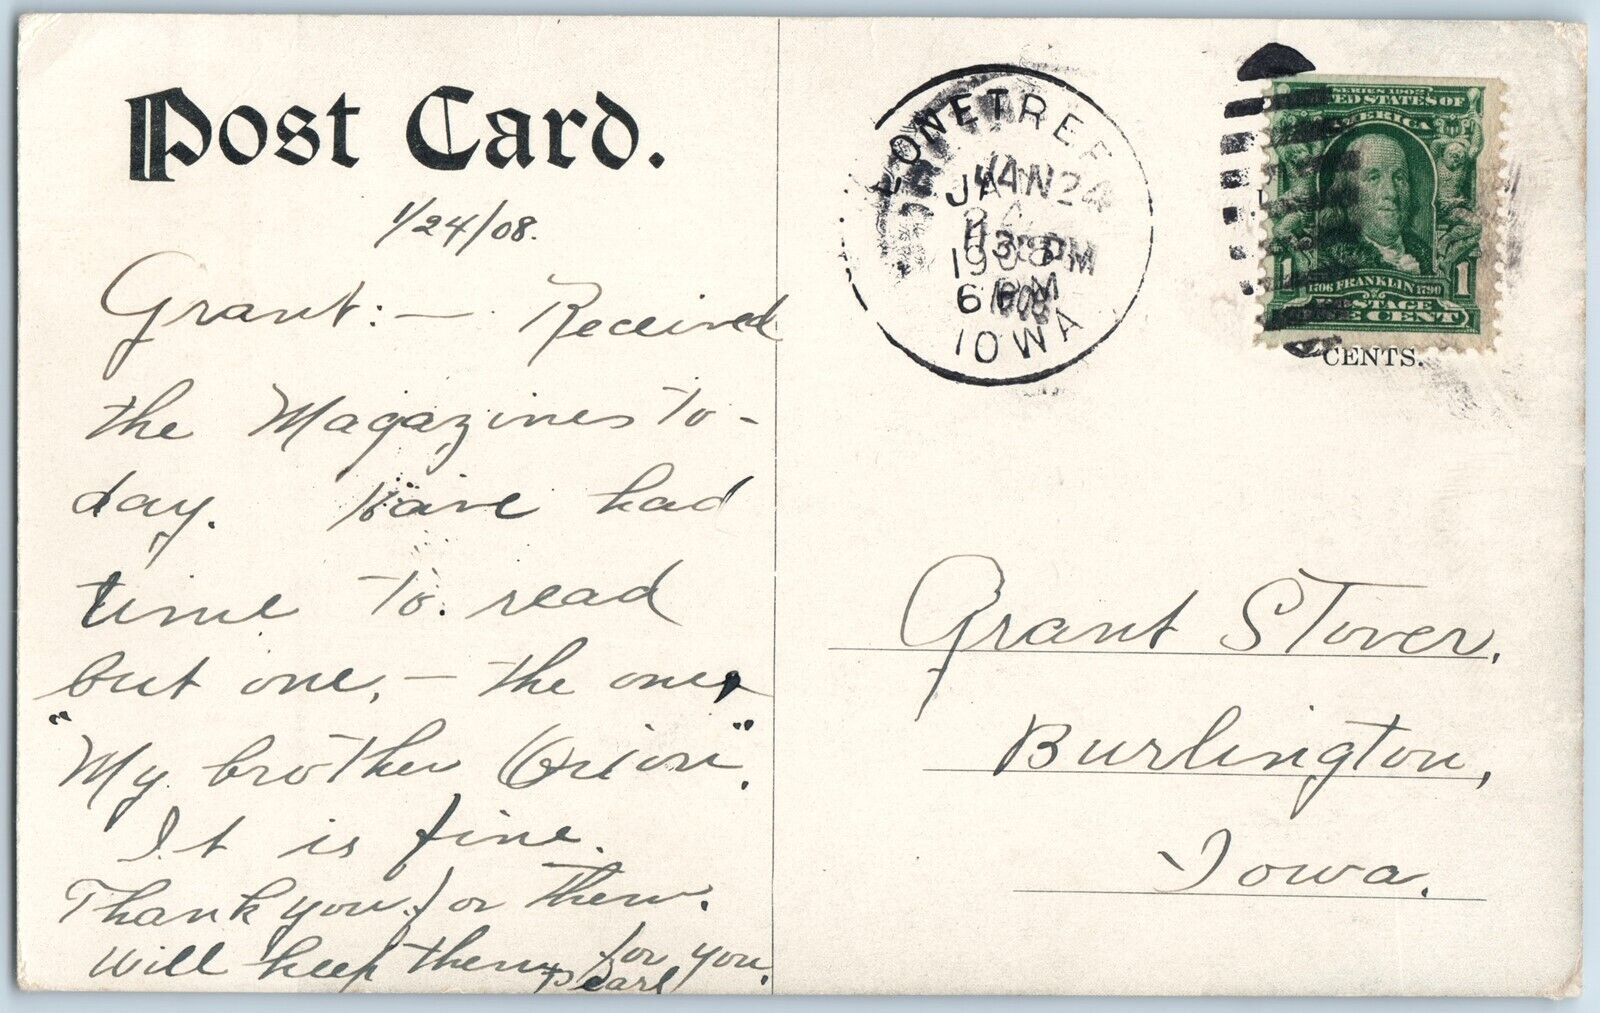 Post Card.
1/24/08.
Grant:— Received
the Magazines to-
day. Have had
time to read
but one,— the one,
"My brother Orion".
It is fine.
Thank you for them.
Will keep them for you.
Pearl
LONETREE
JAN 24
1908
6 PM
IOWA
SERIES 1902
UNITED STATES OF
AMERICA
1 1
1706 FRANKLIN 1790
POSTAGE
ONE CENT
CENTS.
Grant Stover,
Burlington,
Iowa.